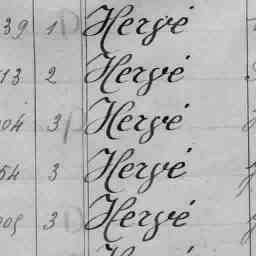 39 1 Hervé
13 2 Hervé
04 3 Hervé
54 3 Hervé
3 Hervé